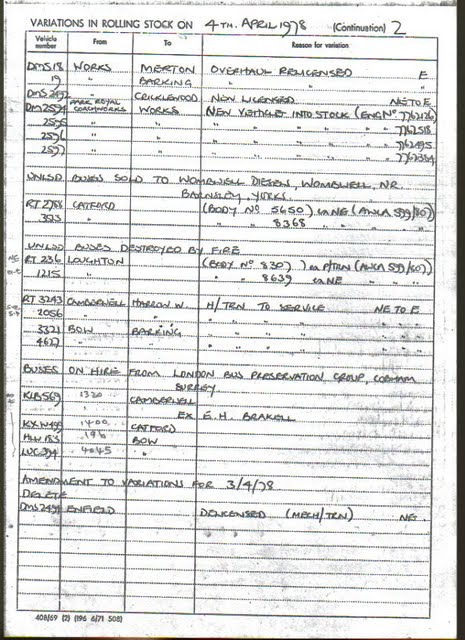 VARIATIONS IN ROLLING STOCK ON 4TH. APRIL 1978 (Continuation) 2
Vehicle number From To Reason for variation
DMS 18 WORKS MERTON OVERHAUL RELICENSED E
19 " BARKING " "
DMS 2492 " CRICKLEWOOD NEW LICENSED NE TO E
DM 2594 PARK ROYAL COACHWORKS WORKS NEW VEHICLE INTO STOCK (ENG Nº 7762126)
2595 " " " " " " 7762518
2596 " " " " " " 7762495
2597 " " " " " " 7762354
UNLSD BUSES SOLD TO WOMBWELL DIESEL, WOMBWELL, NR.
BARNSLEY, YORKS.
RT 2788 CATFORD (BODY Nº 5650) NE (AWLA 599/80)
" 8368 "
UNLSD BUSES DESTROYED BY FIRE
RT 236 LOUGHTON (BODY Nº 830) (AWLA 599/80)
1215 " " 8639 NE
RT 3243 CAMBERWELL HARROW W. H/TRN TO SERVICE NE TO E
2056 " " " " " "
3321 BOW BARKING " " " "
4627 " " " " " "
BUSES ON HIRE FROM LONDON BUS PRESERVATION GROUP, COBHAM
SURREY
1320 CAMBERWELL
EX E.H. BRAKELL
KXW 499 1400 CATFORD
196 BOW
LUC 294 4045 "
AMENDMENT TO VARIATIONS FOR 3/4/78
DELETE
DMS 2491 ENFIELD DELICENSED (MECH/TRN) NE.
408/69 (2) (196 6/71 508)